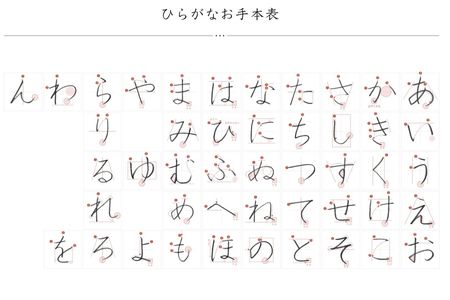 ひらがなお手本表
あいうえお
かきくけこ
さしすせそ
たちつてと
なにぬねの
はひふへほ
まみむめも
やゆよ
らりるれろ
わを
ん